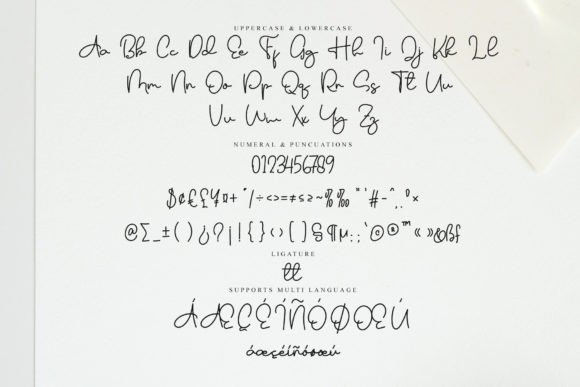 UPPERCASE & LOWERCASE
Aa Bb Cc Dd Ee Ff Gg Hh Ii Jj Kk Ll
Mm Nn Oo Pp Qq Rr Ss Tt Uu
Vv Ww Xx Yy Zz
NUMERAL & PUNCUATIONS
0123456789
$¢€£¥¤+°/÷<>=≠≤≥~%‰"'#-^,.º×
@∑_±()¿?¡!{}‹›[]§¶µ:;`©®™«»&ßf
LIGATURE
tt
SUPPORTS MULTI LANGUAGE
ÁÆÇÉÍÑÓØŒÚ
áæçéíñóøœú